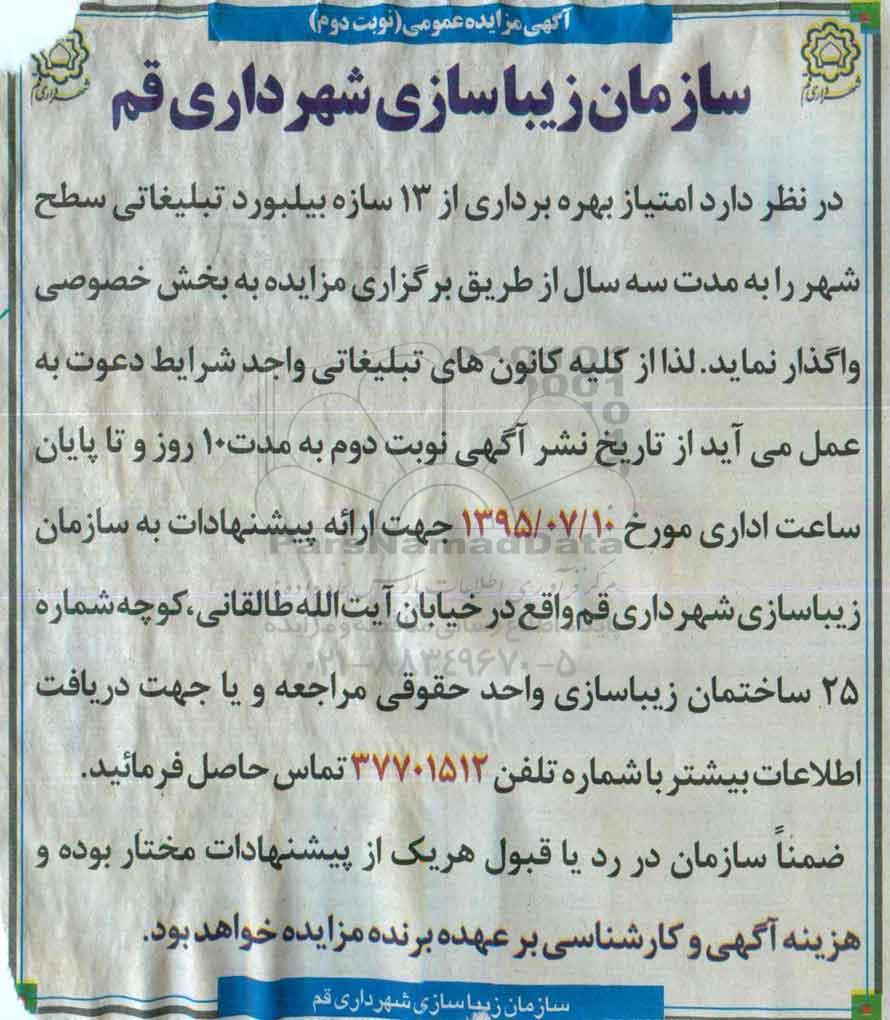 آگهی مزایده عمومی (نوبت دوم)
شهرداری قم
شهرداری قم
سازمان زیباسازی شهرداری قم
در نظر دارد امتیاز بهره برداری از ۱۳ سازه بیلبورد تبلیغاتی سطح
شهر را به مدت سه سال از طریق برگزاری مزایده به بخش خصوصی
واگذار نماید. لذا از کلیه کانون های تبلیغاتی واجد شرایط دعوت به
عمل می آید از تاریخ نشر آگهی نوبت دوم به مدت ۱۰ روز و تا پایان
ساعت اداری مورخ ۱۳۹۵/۰۷/۱۰ جهت ارائه پیشنهادات به سازمان
ParsNamadData
زیباسازی شهرداری قم واقع در خیابان آیت الله طالقانی، کوچه شماره
۰۲۱-۸۸۳۴۹۶۷۰-۵
۲۵ ساختمان زیباسازی واحد حقوقی مراجعه و یا جهت دریافت
اطلاعات بیشتر با شماره تلفن ۳۷۷۰۱۵۱۲ تماس حاصل فرمائید.
ضمناً سازمان در رد یا قبول هریک از پیشنهادات مختار بوده و
هزینه آگهی و کارشناسی بر عهده برنده مزایده خواهد بود.
سازمان زیباسازی شهرداری قم